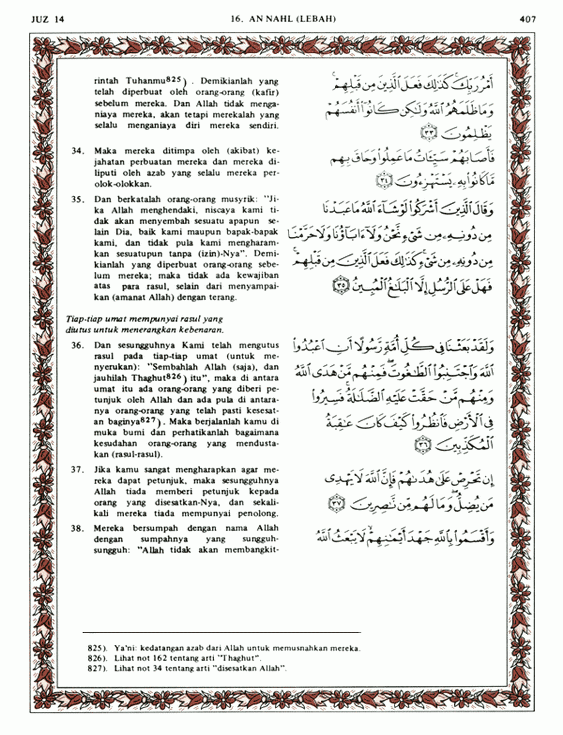 JUZ 14 16. AN NAHL (LEBAH) 407
rintah Tuhanmu825) . Demikianlah yang
telah diperbuat oleh orang-orang (kafir)
sebelum mereka. Dan Allah tidak menga-
niaya mereka, akan tetapi merekalah yang
selalu menganiaya diri mereka sendiri.
34. Maka mereka ditimpa oleh (akibat) ke-
jahatan perbuatan mereka dan mereka di-
liputi oleh azab yang selalu mereka per-
olok-olokkan.
35. Dan berkatalah orang-orang musyrik: "Ji-
ka Allah menghendaki, niscaya kami ti-
dak akan menyembah sesuatu apapun se-
lain Dia, baik kami maupun bapak-bapak
kami, dan tidak pula kami mengharam-
kan sesuatupun tanpa (izin)-Nya". Demi-
kianlah yang diperbuat orang-orang sebe-
lum mereka; maka tidak ada kewajiban
atas para rasul, selain dari menyampai-
kan (amanat Allah) dengan terang.
Tiap-tiap umat mempunyai rasul yang
diutus untuk menerangkan kebenaran.
36. Dan sesungguhnya Kami telah mengutus
rasul pada tiap-tiap umat (untuk me-
nyerukan): "Sembahlah Allah (saja), dan
jauhilah Thaghut826) itu", maka di antara
umat itu ada orang-orang yang diberi pe-
tunjuk oleh Allah dan ada pula di antara-
nya orang-orang yang telah pasti kesesat-
an baginya827). Maka berjalanlah kamu di
muka bumi dan perhatikanlah bagaimana
kesudahan orang-orang yang mendusta-
kan (rasul-rasul).
37. Jika kamu sangat mengharapkan agar me-
reka dapat petunjuk, maka sesungguhnya
Allah tiada memberi petunjuk kepada
orang yang disesatkan-Nya, dan sekali-
kali mereka tiada mempunyai penolong.
38. Mereka bersumpah dengan nama Allah
dengan sumpahnya yang sungguh-
sungguh: "Allah tidak akan membangkit-
أَمْرُ رَبِّكَ ۚ كَذَٰلِكَ فَعَلَ الَّذِينَ مِن قَبْلِهِمْ ۚ
وَمَا ظَلَمَهُمُ اللَّهُ وَلَٰكِن كَانُوا أَنفُسَهُمْ
يَظْلِمُونَ ﴿٣٣﴾
فَأَصَابَهُمْ سَيِّئَاتُ مَا عَمِلُوا وَحَاقَ بِهِم
مَّا كَانُوا بِهِ يَسْتَهْزِءُونَ ﴿٣٤﴾
وَقَالَ الَّذِينَ أَشْرَكُوا لَوْ شَاءَ اللَّهُ مَا عَبَدْنَا
مِن دُونِهِ مِن شَيْءٍ نَّحْنُ وَلَا ءَابَاؤُنَا وَلَا حَرَّمْنَا
مِن دُونِهِ مِن شَيْءٍ ۚ كَذَٰلِكَ فَعَلَ الَّذِينَ مِن قَبْلِهِمْ ۚ
فَهَلْ عَلَى الرُّسُلِ إِلَّا الْبَلَاغُ الْمُبِينُ ﴿٣٥﴾
وَلَقَدْ بَعَثْنَا فِي كُلِّ أُمَّةٍ رَّسُولًا أَنِ اعْبُدُوا
اللَّهَ وَاجْتَنِبُوا الطَّاغُوتَ ۖ فَمِنْهُم مَّنْ هَدَى اللَّهُ
وَمِنْهُم مَّنْ حَقَّتْ عَلَيْهِ الضَّلَالَةُ ۚ فَسِيرُوا
فِي الْأَرْضِ فَانظُرُوا كَيْفَ كَانَ عَاقِبَةُ
الْمُكَذِّبِينَ ﴿٣٦﴾
إِن تَحْرِصْ عَلَىٰ هُدَاهُمْ فَإِنَّ اللَّهَ لَا يَهْدِي
مَن يُضِلُّ ۖ وَمَا لَهُم مِّن نَّاصِرِينَ ﴿٣٧﴾
وَأَقْسَمُوا بِاللَّهِ جَهْدَ أَيْمَانِهِمْ ۙ لَا يَبْعَثُ اللَّهُ
825). Ya'ni: kedatangan azab dari Allah untuk memusnahkan mereka.
826). Lihat not 162 tentang arti "Thaghut".
827). Lihat not 34 tentang arti "disesatkan Allah".